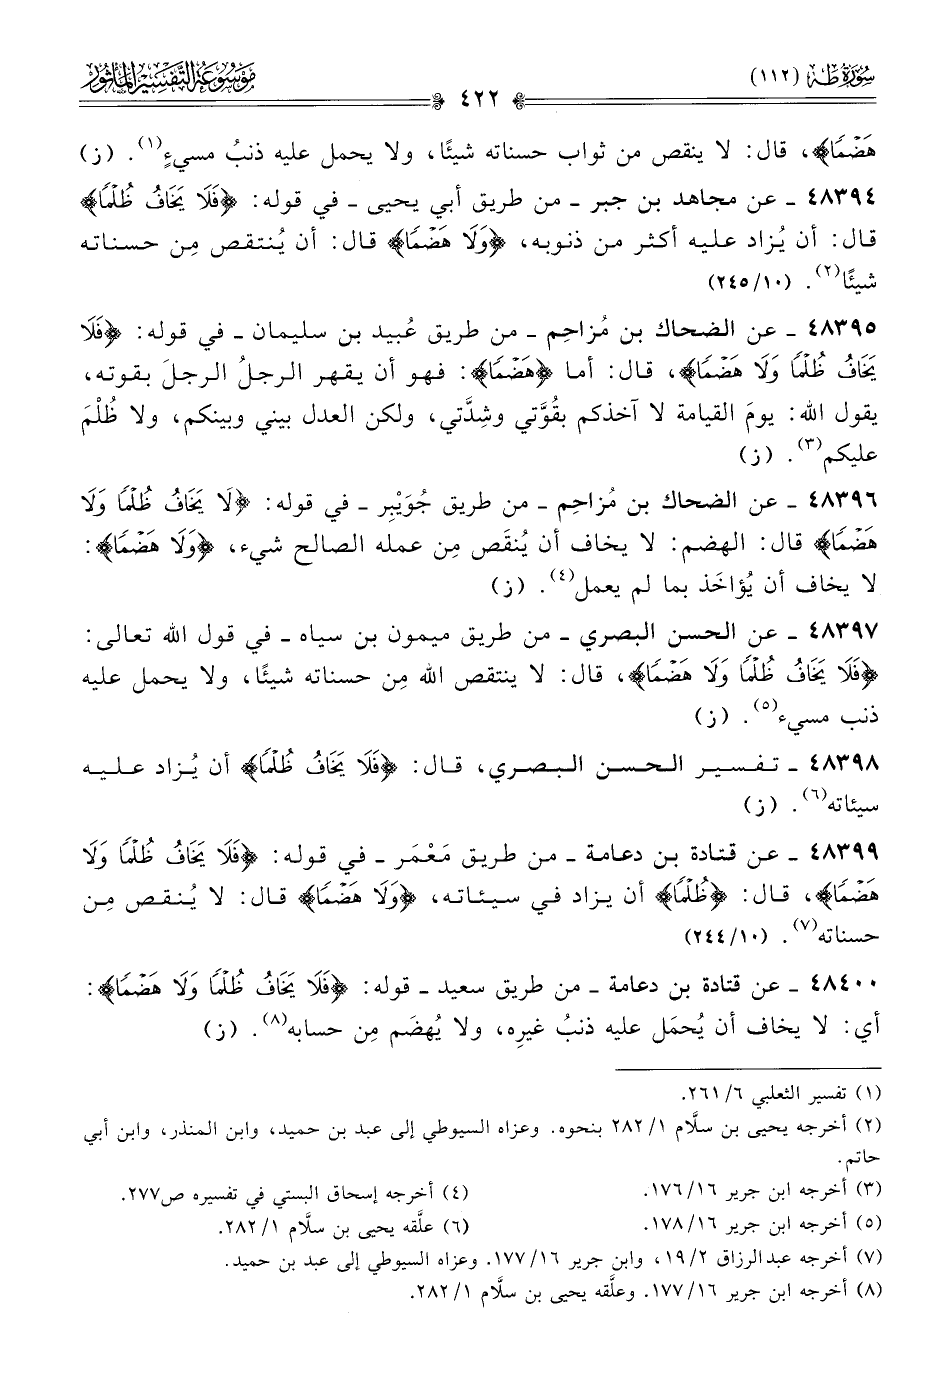 سُورَةُ طه (١١٢)
٤٢٢
مَوْسُوعَةُ التَّفْسِيرِ المَأْثُورِ
هَضْمًا﴾، قال: لا ينقص من ثواب حسناته شيئًا، ولا يحمل عليه ذنبُ مسيءٍ(١). (ز)
٤٨٣٩٤ ـ عن مجاهد بن جبر ـ من طريق أبي يحيى ـ في قوله: ﴿فَلَا يَخَافُ ظُلْمًا﴾
قال: أن يُزاد عليه أكثر من ذنوبه، ﴿وَلَا هَضْمًا﴾ قال: أن يُنتقص مِن حسناته
شيئًا(٢). (٢٤٥/١٠)
٤٨٣٩٥ ـ عن الضحاك بن مُزاحِم ـ من طريق عُبيد بن سليمان ـ في قوله: ﴿فَلَا
يَخَافُ ظُلْمًا وَلَا هَضْمًا﴾، قال: أما ﴿هَضْمًا﴾: فهو أن يقهر الرجلُ الرجلَ بقوته،
يقول الله: يومَ القيامة لا آخذكم بقُوَّتي وشِدَّتي، ولكن العدل بيني وبينكم، ولا ظُلْمَ
عليكم(٣). (ز)
٤٨٣٩٦ ـ عن الضحاك بن مُزاحِم ـ من طريق جُوَيْبِر ـ في قوله: ﴿لَا يَخَافُ ظُلْمًا وَلَا
هَضْمًا﴾ قال: الهضم: لا يخاف أن يُنقَص مِن عمله الصالح شيء، ﴿وَلَا هَضْمًا﴾:
لا يخاف أن يُؤاخَذ بما لم يعمل(٤). (ز)
٤٨٣٩٧ ـ عن الحسن البصري ـ من طريق ميمون بن سياه ـ في قول الله تعالى:
﴿فَلَا يَخَافُ ظُلْمًا وَلَا هَضْمًا﴾، قال: لا ينتقص الله مِن حسناته شيئًا، ولا يحمل عليه
ذنب مسيء(٥). (ز)
٤٨٣٩٨ ـ تفسير الحسن البصري، قال: ﴿فَلَا يَخَافُ ظُلْمًا﴾ أن يُزاد عليه
سيئاته(٦). (ز)
٤٨٣٩٩ ـ عن قتادة بن دعامة ـ من طريق مَعْمَر ـ في قوله: ﴿فَلَا يَخَافُ ظُلْمًا وَلَا
هَضْمًا﴾، قال: ﴿ظُلْمًا﴾ أن يزاد في سيئاته، ﴿وَلَا هَضْمًا﴾ قال: لا يُنقص مِن
حسناته(٧). (٢٤٤/١٠)
٤٨٤٠٠ ـ عن قتادة بن دعامة ـ من طريق سعيد ـ قوله: ﴿فَلَا يَخَافُ ظُلْمًا وَلَا هَضْمًا﴾:
أي: لا يخاف أن يُحمَل عليه ذنبُ غيرِه، ولا يُهضَم مِن حسابه(٨). (ز)
(١) تفسير الثعلبي ٢٦١/٦.
(٢) أخرجه يحيى بن سلَّام ٢٨٢/١ بنحوه. وعزاه السيوطي إلى عبد بن حميد، وابن المنذر، وابن أبي
حاتم.
(٣) أخرجه ابن جرير ١٧٦/١٦. (٤) أخرجه إسحاق البستي في تفسيره ص٢٧٧.
(٥) أخرجه ابن جرير ١٧٨/١٦. (٦) علَّقه يحيى بن سلَّام ٢٨٢/١.
(٧) أخرجه عبدالرزاق ١٩/٢، وابن جرير ١٧٧/١٦. وعزاه السيوطي إلى عبد بن حميد.
(٨) أخرجه ابن جرير ١٧٧/١٦. وعلَّقه يحيى بن سلَّام ٢٨٢/١.